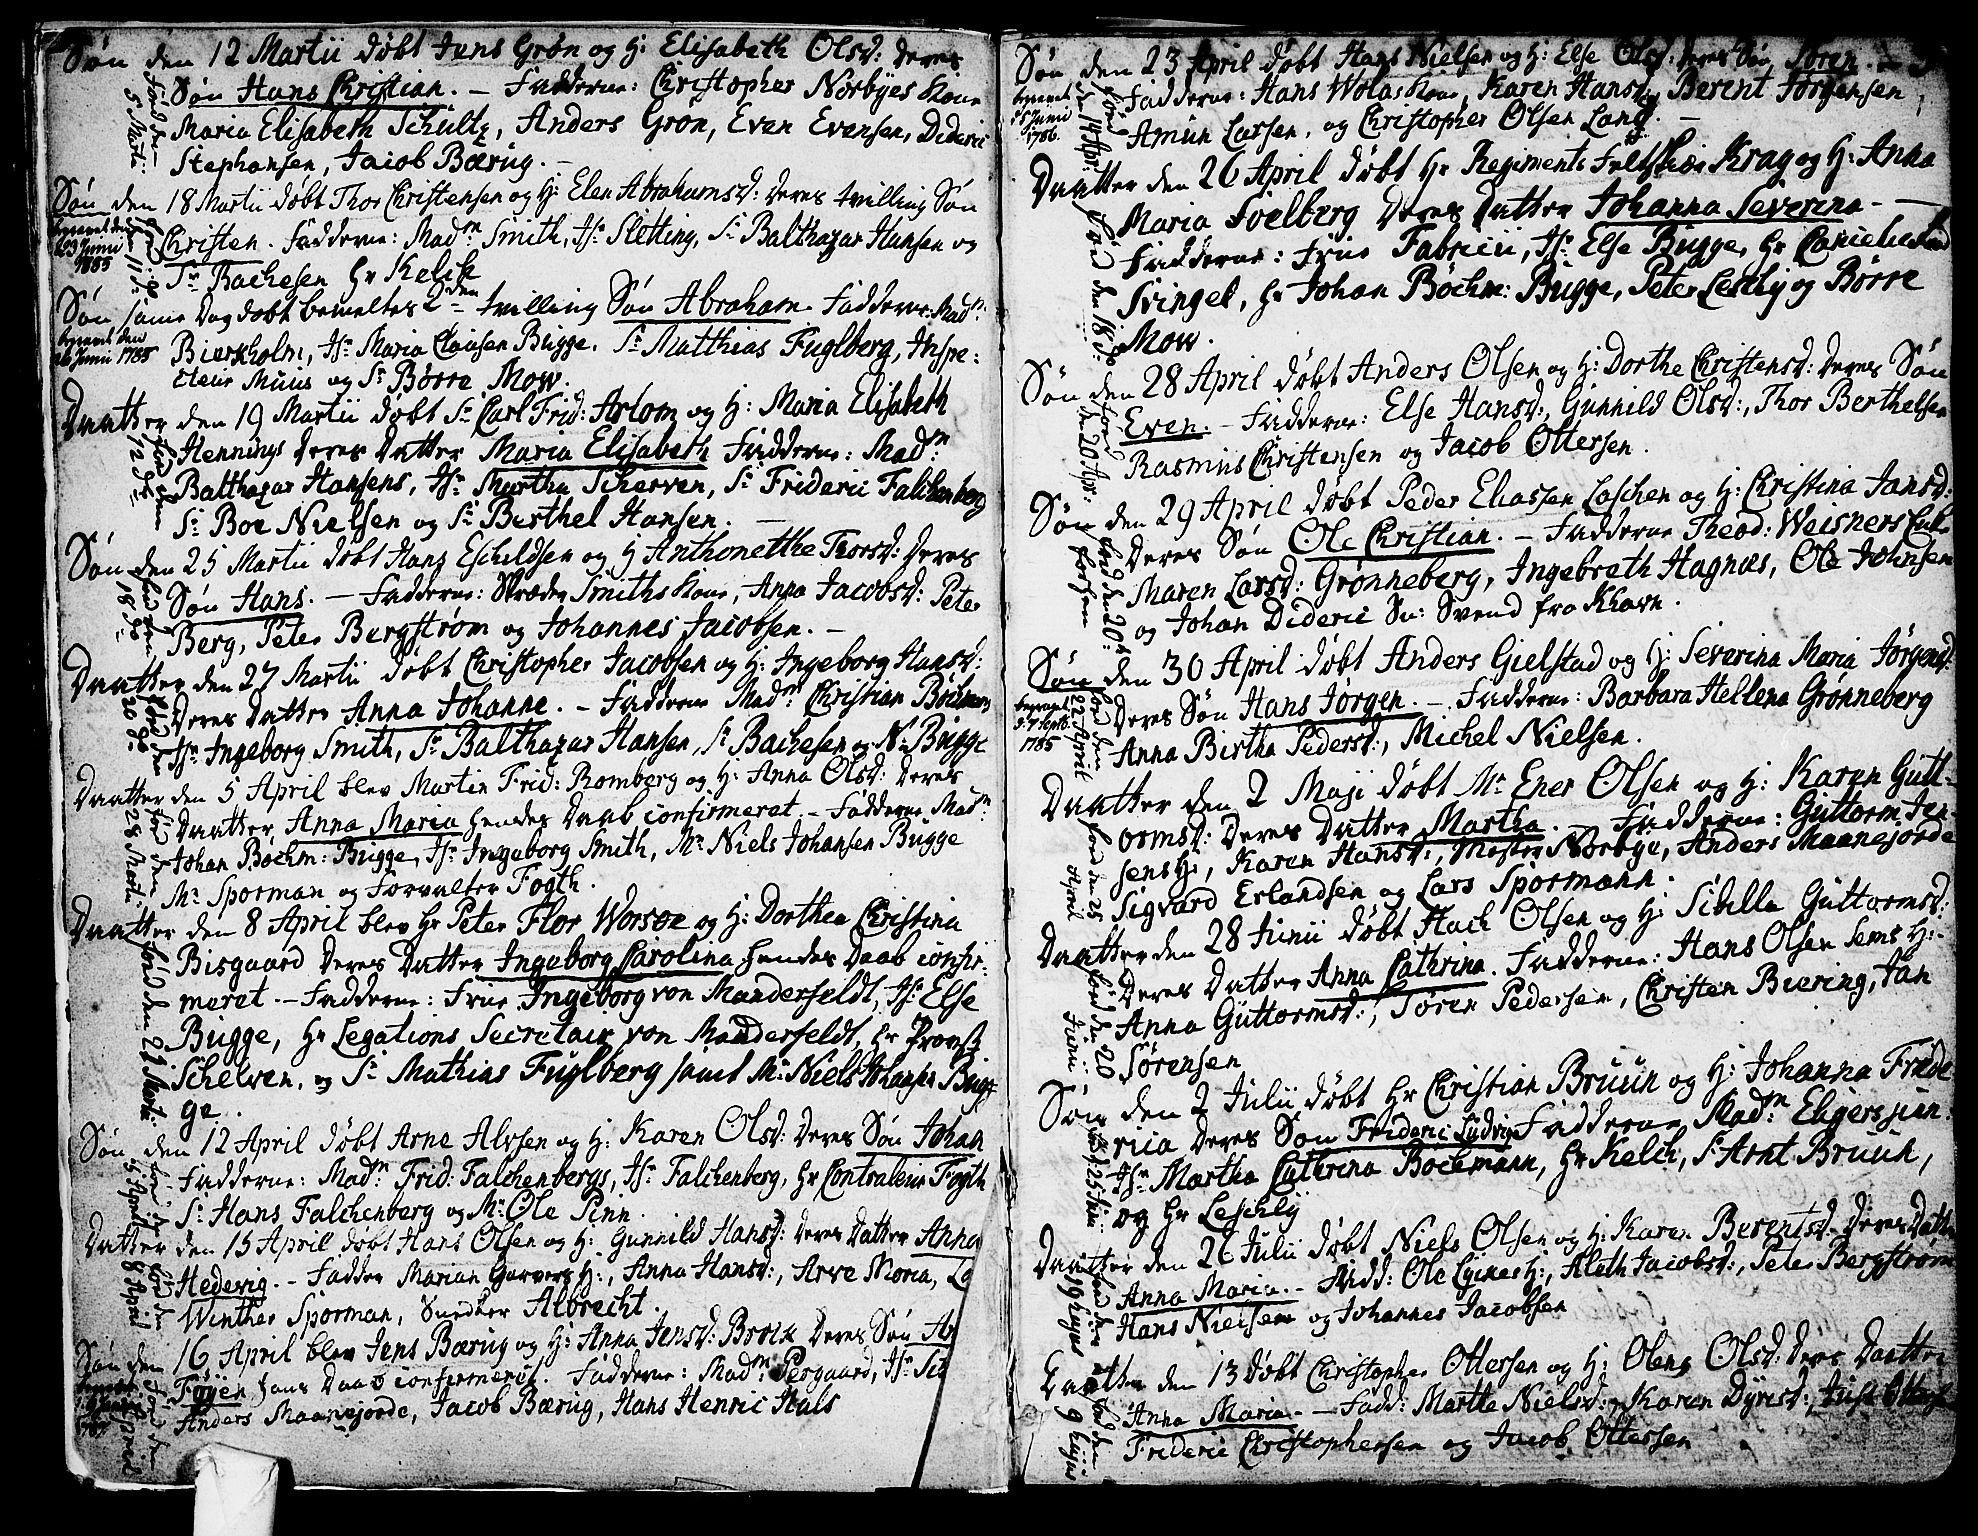 Søn den 12 Martii døbt Jens Grøn og H: Elisabeth Olsd: Deres
Søn Hans Christian. – Fadderne: Christopher Norbyes Kone
Maria Elisabeth Schultz, Anders Grøn, Even Evensen, Dideric
Stephansen, Jacob Bærug. –
fød den
5 Martii
Søn den 18 Martii døbt Thor Christensen og H: Elen Abrahamsd: Deres tvilling Søn
Christen. Fadderne: Madm Smith, Jfr Sletting, Sr Balthazar Hansen og
Sr Bachesen Hr Kelck
begravet den
23 Junii
1785
Søn same Dag døbt bemeltes 2den tvilling Søn Abraham. Fadderne: Madm:
Bierkholm, Jfr Maria Clausen Bugge, Sr Matthias Fuglberg, Inspe-
cteur Muus og Sr Børre Mow.
begravet den
Junii 1785
Daatter den 19 Martii døbt Sr Carl Frid: Arlom og H: Maria Elisabeth
Hennings Deres Datter Maria Elisabeth Fadderne: Madm
Balthazar Hansens, Jfr Martha Scherven, Sr Frideric Falchenberg
Sr Boe Nielsen og Sr Berthel Hansen. –
fød den
12 D:
Søn den 25 Martii døbt Hans Eschildsen og H Anthonette Thorsd: Deres
Søn Hans. – Fadderne: Skreder Smiths Kone, Anna Jacobsd: Peter
Berg, Peter Bergstrøm og Johannes Jacobsen. –
fød den
18 do
Daatter den 27 Martii døbt Christopher Jacobsen og H: Ingeborg Hansd:
Deres Datter Anna Johanne. – Fadderne Madm Christian Böchmans
Jfr Ingeborg Smith, Sr Balthazar Hansen, Sr Bachesen og N: Bugge
fød den
20 do
Daatter den 5 April blev Martin Frid: Romberg og H: Anna Olsd: Deres
Daatter Anna Maria hendes Daab confirmeret. – Fadderne Madm:
Johan Bochm: Bugge, Jfr Ingeborg Smith, Mr Niels Johansen Bugge
Mr Sporman og Forvalter Fogth.
fød den
28 Martii
Daatter den 8 April blev Hr Peter Flor Worsøe og H: Dorthea Christina
Bisgaard Deres Datter Ingeborg Carolina hendes Daab confir-
meret. – Fadderne: Frue Ingeborg von Manderfeldt, Jfr Else
Bugge, Hr Legations Secretair von Manderfeldt, Hr Provst
Schelven, og Sr Mathias Fuglberg samt Mr Niels Johansen Bug-
ge.
fød den 21 Martii
Søn den 12 April døbt Arne Alvsen og H: Karen Olsd: Deres Søn Johan
Fadderne: Madm Frid: Falchenbergs, Jfr Falchenberg, Hr Contraleur Fogth
Sr Hans Falchenberg og Mr Ole Finn.
fød den
5 April
Datter den 15 April døbt Hans Olsen og H: Gunnild Hansd: Deres Datter Anna
Hedevig. – Fadder Marian Garvers H:, Anna Hansd:, Arve Moria,
Winther Sporman, Snedker Albrecht.
fød den
8 April
Søn den 16 April blev Jens Bærug og H: Anna Jensd: Broch Deres Søn
Føyen hans Daab confirmeret. Fadderne: Madm Pergaard, Jfr
Anders Maanejorde, Jacob Bærug, Hans Henric Hals
fød den
April
Søn den 23 April døbt Hans Nielsen og H: Else Olsd: Deres Søn Søren. –
Fadderne: Hans Wolas Kone, Karen Hansd:, Berent Jørgensen
Amun Larsen, og Christopher Olsen Lang. –
begravet
d 5 Junii
1786
fød
den 14 Apr:
Daatter den 26 April døbt Hr Regiments Feltskiær Krag og H: Anna
Maria Svelberg Deres Datter Johanna Severina. –
Fadderne: Frue Fabricii, Jfr Else Bugge, Hr
Svingel, Hr Johan Bøchm: Bugge, Peter Leschy og Børre
Mow.
fød den 18 do
Søn den 28 April døbt Anders Olsen og H: Dorthe Christensd: Deres Søn
Even. – Fadderne: Else Hansd:, Gunnild Olsd:, Thor Berthelsen
Rasmus Christensen og Jacob Ottersen.
fød
den 20 Apr:
Søn den 29 April døbt Peder Eliassen Laschen og H: Christina Jansd:
Deres Søn Ole Christian. – Fadderne Theod: Weisners Enke
Maren Larsd: Grønneberg, Ingebreth Hagnæs, Ole Johnsen
og Johan Dideric Sn: Svend fra Khavn.
fød den 20de
Søn den 30 April døbt Anders Gielstad og H: Severina Maria Jørgensd:
Deres Søn Hans Jørgen. – Fadderne: Barbara Hellena Grønneberg
Anna Birtha Pedersd:, Michel Nielsen.
begravet
d. 7 Septb.
1785
fød den
22 April
Daatter den 2 Maji døbt Mr Ener Olsen og H: Karen Gutt-
ormsd: Deres Datter Martha. – Fadderne: Guttorm Jen-
sens H:, Karen Hansd:, Mester Norbye, Anders Maanejorde
Sigvard Erlandsen og Lars Spormann.
fød den 25
April
Daatter den 28 Junii døbt Hach Olsen og H: Sidille Guttormsd:
Deres Datter Anna Cathrina. Fadderne: Hans Olsen Sems H:
Anna Guttormsd:, Søren Pedersen, Christen Biering, Jan
Sørensen
fød den 20
Junii
Søn den 2 Julii døbt Hr Christian Bruun og H: Johanna Fride
rica Deres Søn Frideric Ludvig Fadderne Madm Eligersjun:
Jfr Martha Cathrina Bochmann, Hr Kelck, Sr Arnt Bruun,
og Hr Leschly
fød d: 25 Junii
Daatter den 26 Julii døbt Niels Olsen og H: Karen Berentsd: Deres Datter
Anna Maria. – Fadd: Ole Lyckes H:, Aleth Jacobsd:, Peter Bergstrøm
Hans Nielsen og Johannes Jacobsen
fød den
19 hujus
Daatter den 13 døbt Christopher Ottersen og H: Olena Olsd: Deres Daatter
Anna Maria. – Fadd: Marthe Nielsd:, Karen Dyresd:, Just Ottersen
Frideric Christophersen og Jacob Ottersen
fød den
9 hujus